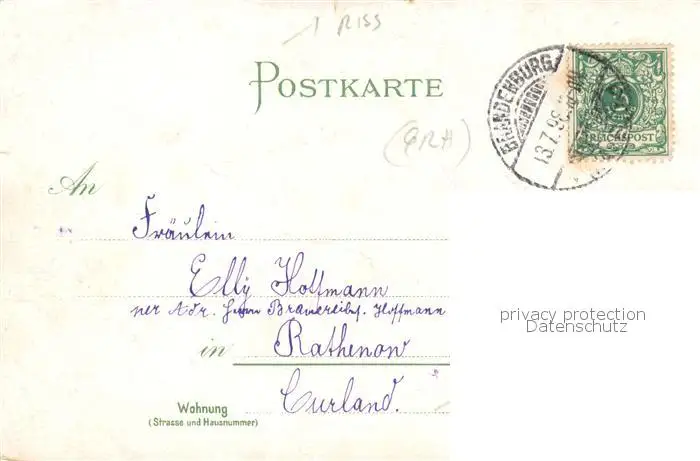 1 RISS
POSTKARTE
BRANDENBURG
13.7.98
REICHSPOST
(GRH)
An
Fräulein
Elly Hoffmann
per Adr. Herrn Brauereibes. Hoffmann
in Rathenow
Curland.
Wohnung
(Strasse und Hausnummer)
privacy protection
Datenschutz